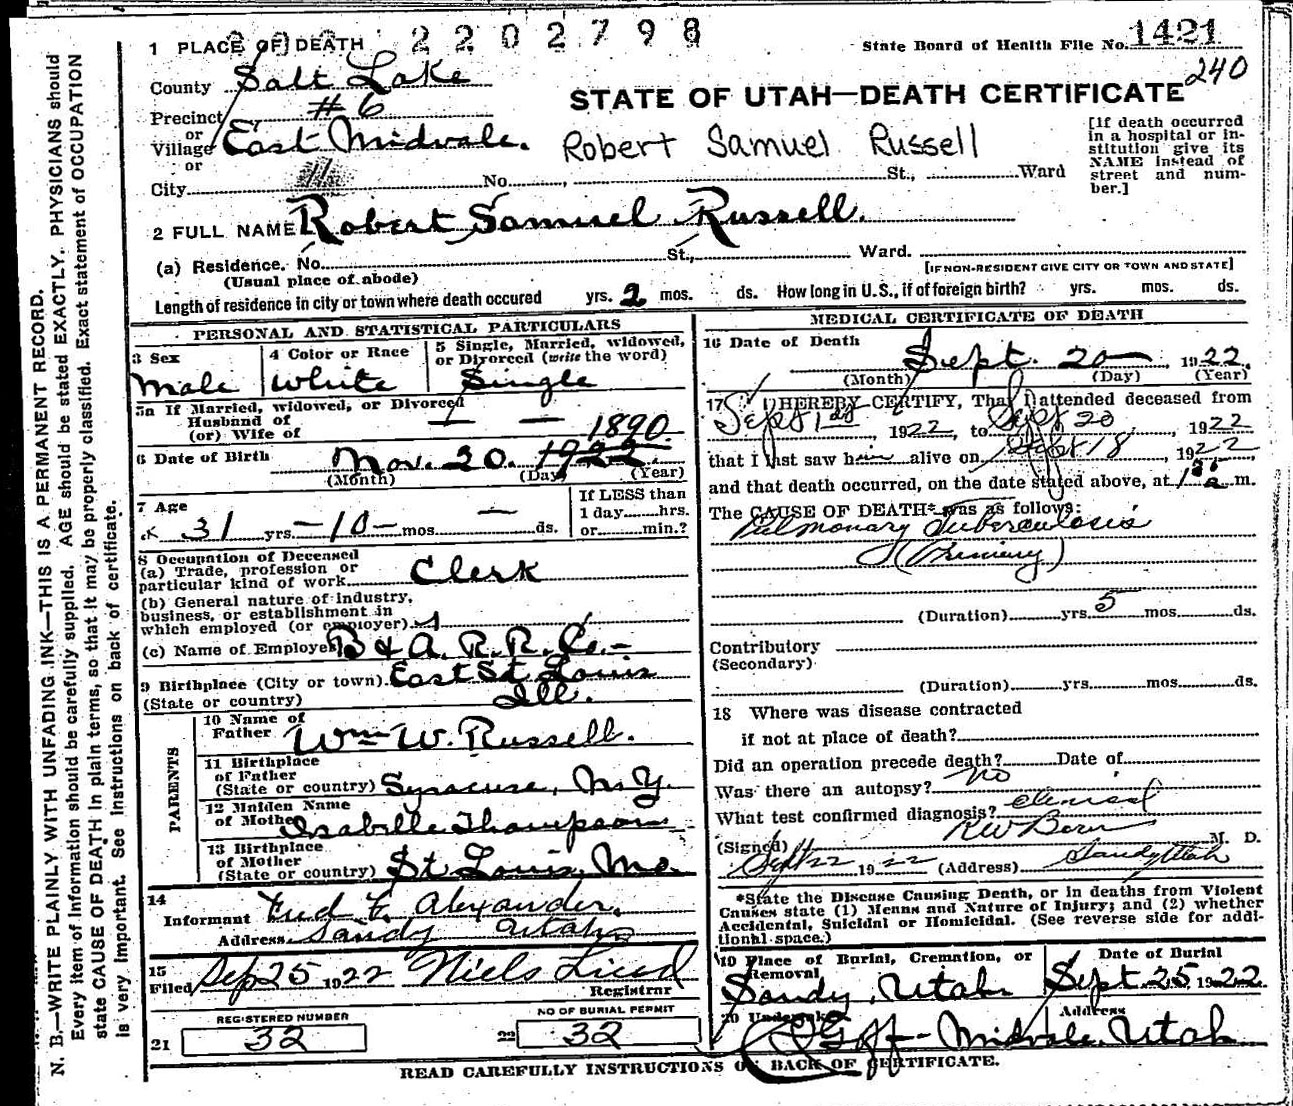 2202798
1 PLACE OF DEATH
State Board of Health File No. 1421
240
County Salt Lake
STATE OF UTAH—DEATH CERTIFICATE
Precinct #6
or
Village East Midvale.
or
Robert Samuel Russell
[If death occurred in a hospital or institution give its NAME instead of street and number.]
City No. , St., Ward
2 FULL NAME Robert Samuel Russell.
(a) Residence. No. St., Ward.
(Usual place of abode)
[IF NON-RESIDENT GIVE CITY OR TOWN AND STATE]
Length of residence in city or town where death occured yrs. 2 mos. ds. How long in U.S., if of foreign birth? yrs. mos. ds.
PERSONAL AND STATISTICAL PARTICULARS
3 Sex
Male
4 Color or Race
White
5 Single, Married, widowed, or Divorced (write the word)
Single
5a If Married, widowed, or Divorced
Husband of
(or) Wife of — —
1890
6 Date of Birth Nov. 20. 1922.
(Month) (Day) (Year)
7 Age
31 yrs — 10 — mos. — ds.
If LESS than
1 day......hrs.
or......min.?
8 Occupation of Deceased
(a) Trade, profession or
particular kind of work Clerk
(b) General nature of industry,
business, or establishment in
which employed (or employer)
(c) Name of Employer B & A. R. R. Co.—
9 Birthplace (City or town) East St. Louis
(State or country) Ill.
PARENTS
10 Name of
Father Wm W. Russell.
11 Birthplace
of Father
(State or country) Syracuse, N.Y.
12 Maiden Name
of Mother Isabelle Thompson
13 Birthplace
of Mother
(State or country) St. Louis, Mo.
14
Informant Fred E. Alexander.
Address Sandy Utah
15
Filed Sep 25 1922 Niels Lind
Registrar
REGISTERED NUMBER
21 32
NO OF BURIAL PERMIT
22 32
MEDICAL CERTIFICATE OF DEATH
16 Date of Death
Sept. 20— 1922.
(Month) (Day) (Year)
17 I HEREBY CERTIFY, That I attended deceased from
Sept 1st, 1922, to Sept 20, 1922
that I last saw him alive on Sept 18, 1922,
and that death occurred, on the date stated above, at m.
The CAUSE OF DEATH* was as follows:
Pulmonary Tuberculosis
(Primary)
(Duration) yrs. 5 mos. ds.
Contributory
(Secondary)
(Duration) yrs. mos. ds.
18 Where was disease contracted
if not at place of death?
Did an operation precede death? Date of
Was there an autopsy? no
What test confirmed diagnosis? clinical
(Signed) M. D.
Sept 22 1922 (Address) Sandy Utah
*State the Disease Causing Death, or in deaths from Violent
Causes state (1) Means and Nature of Injury; and (2) whether
Accidental, Suicidal or Homicidal. (See reverse side for addi-
tional space.)
19 Place of Burial, Cremation, or
Removal
Sandy, Utah
Date of Burial
Sept 25 1922
20 Undertaker
Address
Goff— Midvale, Utah
READ CAREFULLY INSTRUCTIONS ON BACK OF CERTIFICATE.
N. B.—WRITE PLAINLY WITH UNFADING INK—THIS IS A PERMANENT RECORD.
Every item of information should be carefully supplied. AGE should be stated EXACTLY. PHYSICIANS should
state CAUSE OF DEATH in plain terms, so that it may be properly classified. Exact statement of OCCUPATION
is very important. See instructions on back of certificate.